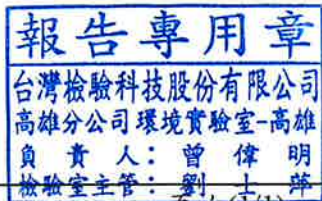 報告專用章
台灣檢驗科技股份有限公司
高雄分公司環境實驗室-高雄
負責人：曾偉明
檢驗室主管：劉士萍
(1/1)